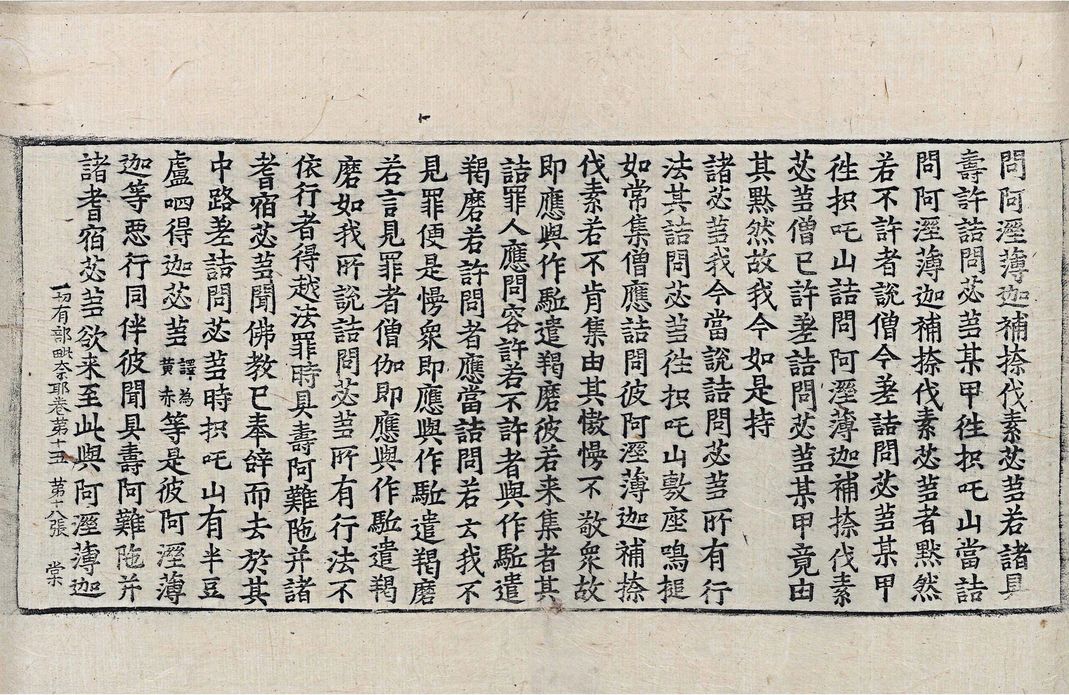 問阿溼薄迦補捺伐素苾芻若諸具
壽許詰問苾芻某甲徃抧吒山當詰
問阿溼薄迦補捺伐素苾芻者黙然
若不許者說僧今差詰問苾芻某甲
徃抧吒山詰問阿溼薄迦補捺伐素
苾芻僧已許差詰問苾芻某甲竟由
其黙然故我今如是持
諸苾芻我今當說詰問苾芻所有行
法其詰問苾芻徃抧吒山敷座鳴揵
如常集僧應詰問彼阿溼薄迦補捺
伐素若不肯集由其慠慢不敬衆故
即應與作駈遣羯磨彼若来集者其
詰罪人應問容許若不許者與作駈遣
羯磨若許問者應當詰問若云我不
見罪便是慢衆即應與作駈遣羯磨
若言見罪者僧伽即應與作駈遣羯
磨如我所說詰問苾芻所有行法不
依行者得越法罪時具壽阿難陁并諸
耆宿苾芻聞佛教已奉辝而去於其
中路差詰問苾芻時抧吒山有半豆
盧呬得迦苾芻譯為黄赤等是彼阿溼薄
迦等惡行同伴彼聞具壽阿難陁并
諸耆宿苾芻欲来至此與阿溼薄迦
一切有部毗奈耶卷第十五 第十八張 棠